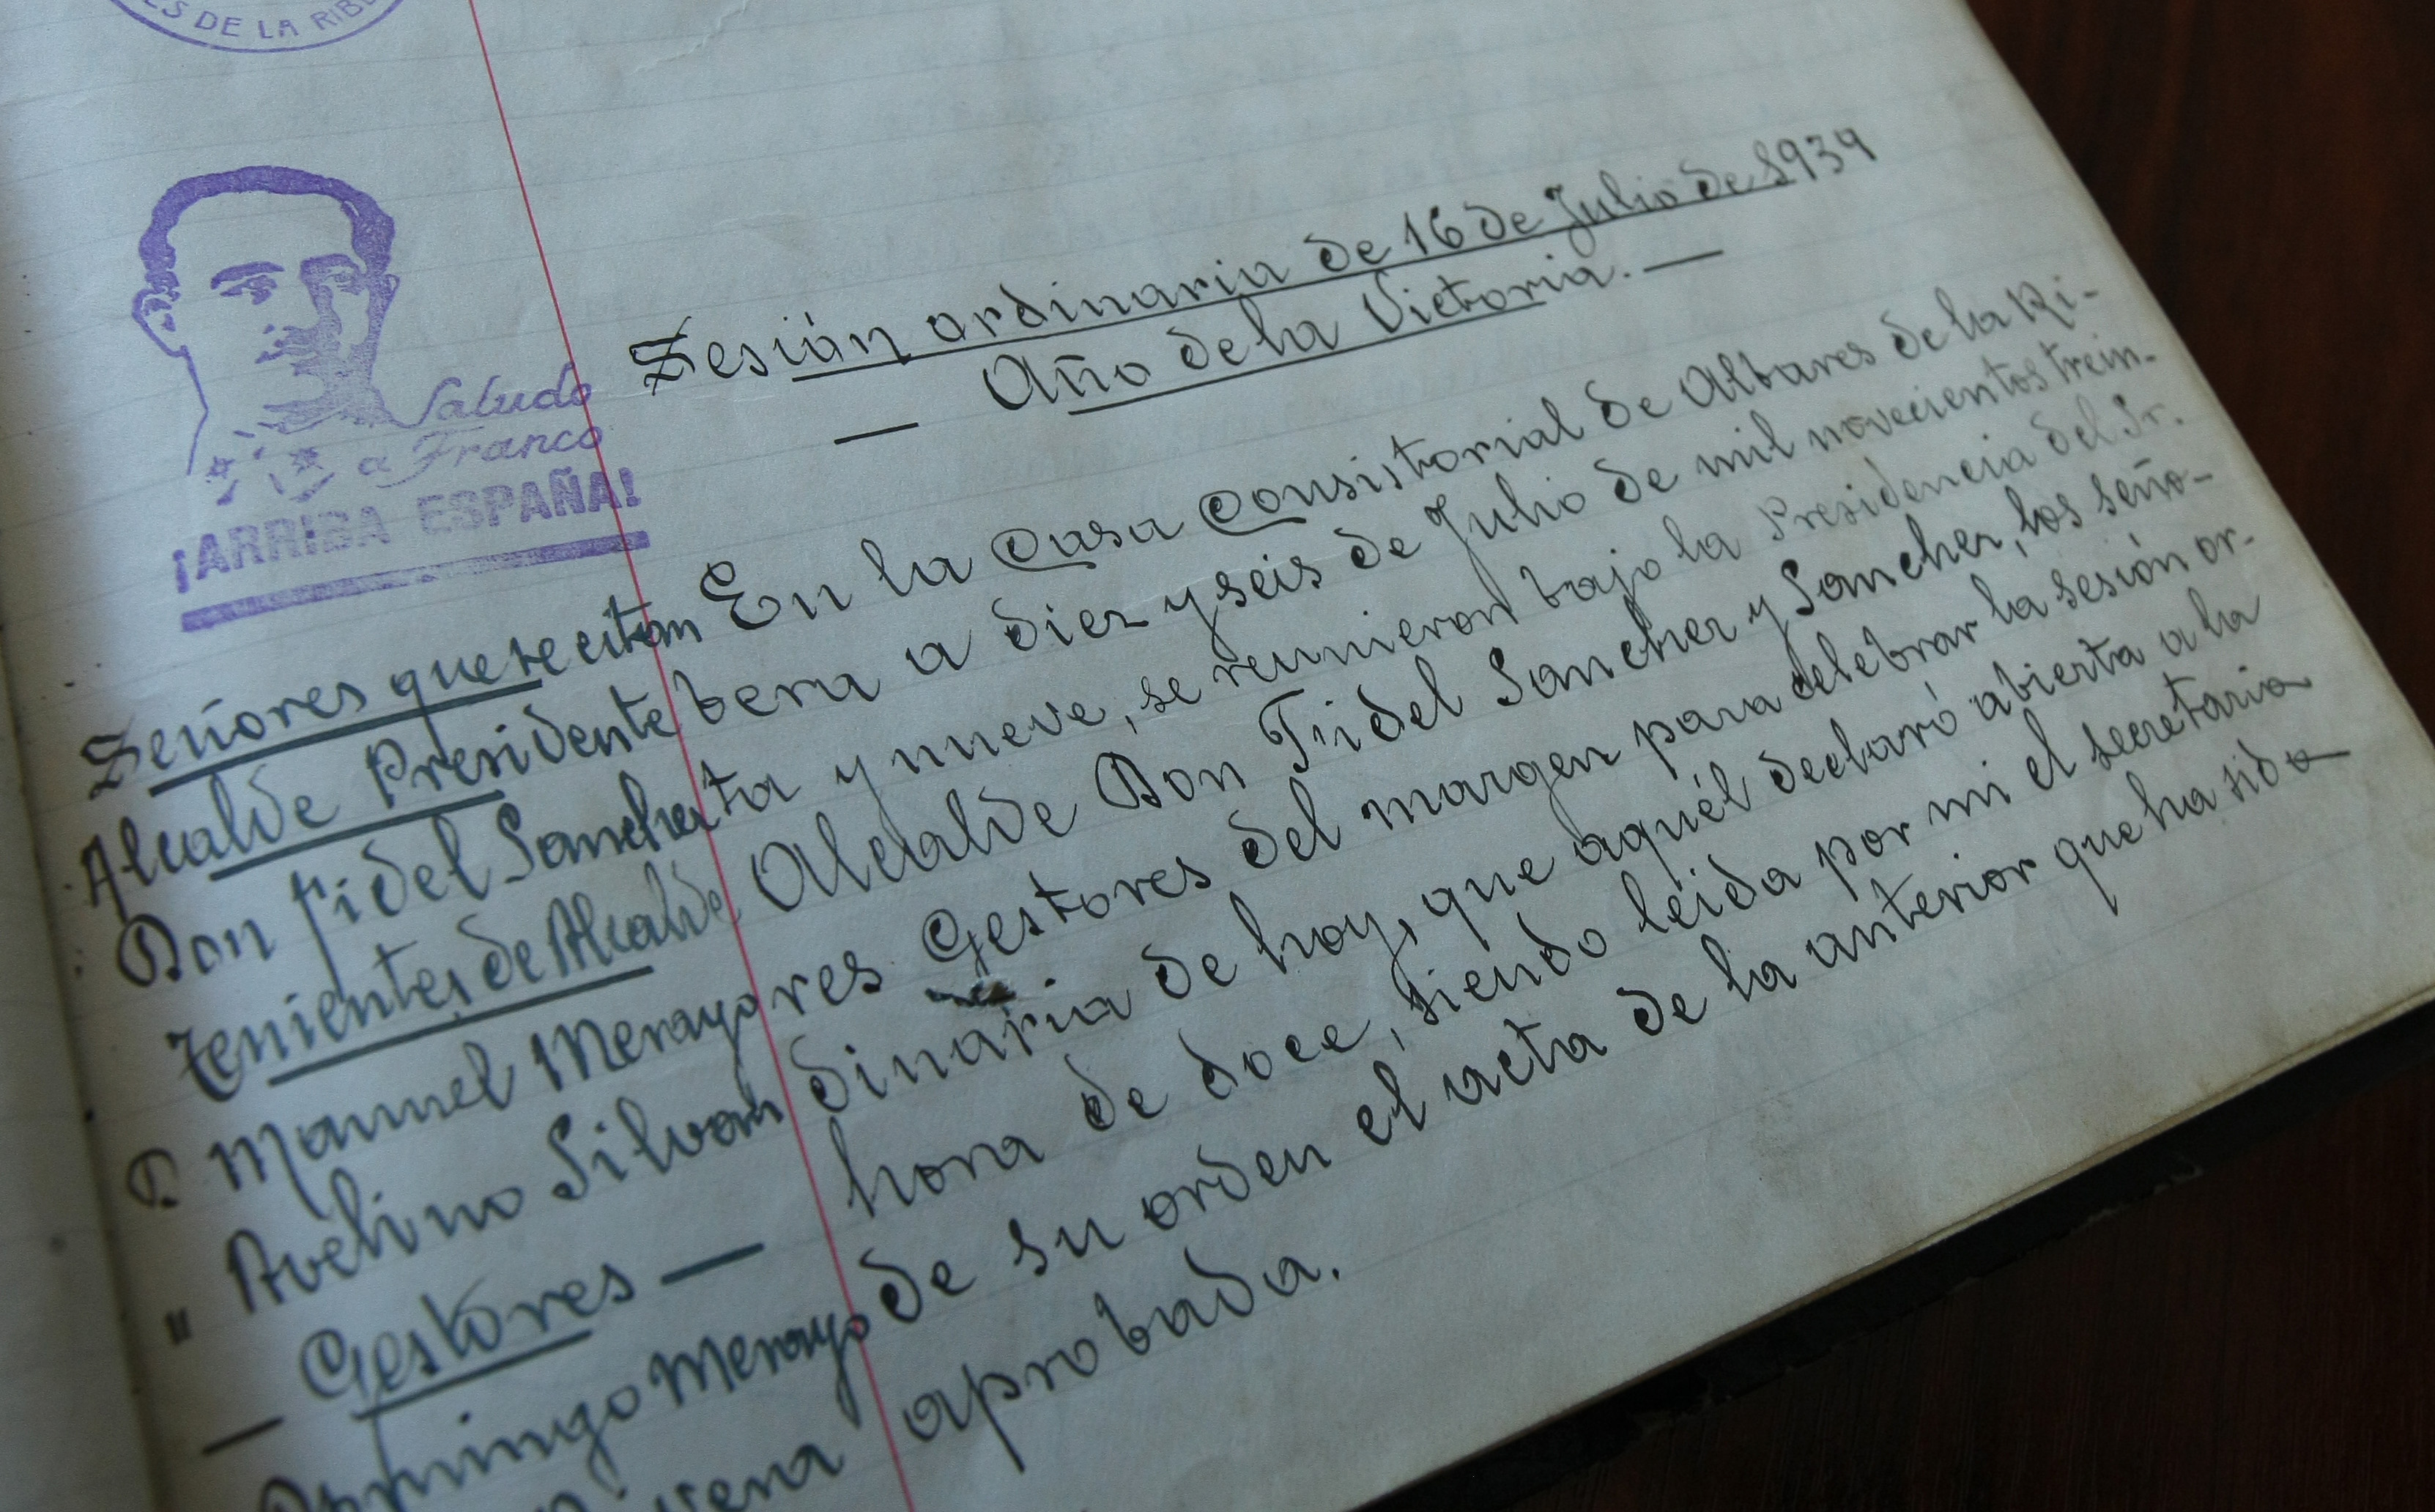 ES DE LA RIB
Saludo
a Franco
¡ARRIBA ESPAÑA!
Sesión ordinaria de 16 de Julio de 1939
— Año de la Victoria. —
Señores que se citan
Alcalde Presidente
Don Fidel Sanchez
Tenientes de Alcalde
D. Manuel Merayo
" Avelino Silvan
— Gestores —
Domingo Merayo
En la Casa Consistorial de Albares de la Ri-
bera a diez y seis de Julio de mil novecientos trein-
ta y nueve, se reunieron bajo la Presidencia del Sr.
Alcalde Don Fidel Sanchez y Sanchez, los seño-
res Gestores del margen para celebrar la sesión or-
dinaria de hoy, que aquél declaró abierta a la
hora de doce, siendo leida por mi el secretario
de su orden el acta de la anterior que ha sido
aprobada.